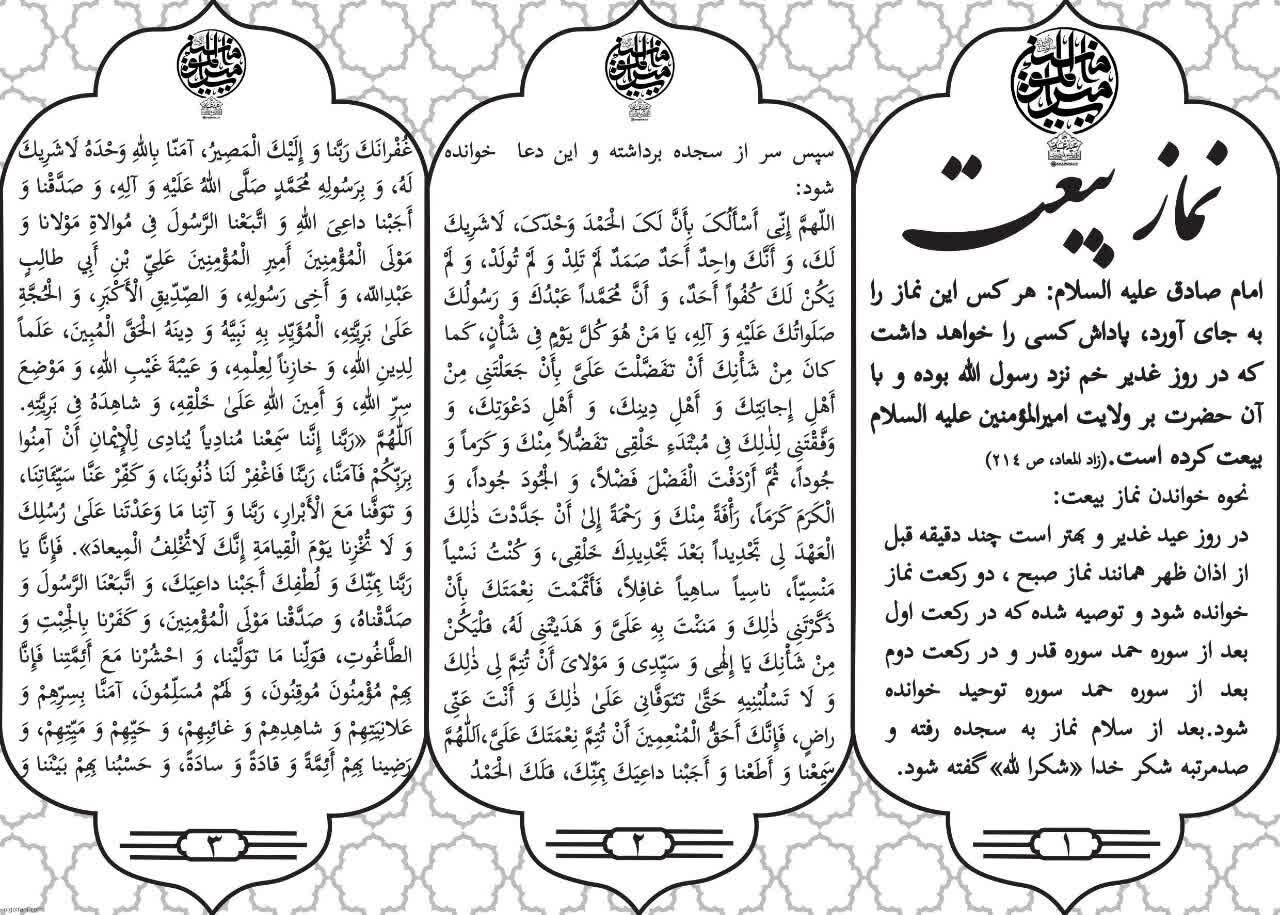 نماز بیعت
امام صادق علیه السلام: هر کس این نماز را
به جای آورد، پاداش کسی را خواهد داشت
که در روز غدیر خم نزد رسول الله بوده و با
آن حضرت بر ولایت امیرالمؤمنین علیه السلام
بیعت کرده است.(زاد المعاد، ص ۲۱٤)
نحوه خواندن نماز بیعت:
در روز عید غدیر و بهتر است چند دقیقه قبل
از اذان ظهر همانند نماز صبح ، دو رکعت نماز
خوانده شود و توصیه شده که در رکعت اول
بعد از سوره حمد سوره قدر و در رکعت دوم
بعد از سوره حمد سوره توحید خوانده
شود.بعد از سلام نماز به سجده رفته و
صدمرتبه شکر خدا «شکرا لله» گفته شود.
۱
سپس سر از سجده برداشته و این دعا خوانده
شود:
اللّهمَّ إِنّی أَسْأَلُکَ بِأَنَّ لَکَ الْحَمْدَ وَحْدَکَ، لَاشَرِيكَ
لَكَ، وَ أَنَّكَ واحِدٌ أَحَدٌ صَمَدٌ لَمْ تَلِدْ وَ لَمْ تُولَدْ، وَ لَمْ
يَكُنْ لَكَ كُفُواً أَحَدٌ، وَ أَنَّ مُحَمَّداً عَبْدُكَ وَ رَسُولُكَ
صَلَواتُكَ عَلَيْهِ وَ آلِهِ، يَا مَنْ هُوَ كُلَّ يَوْمٍ فِی شَأْنٍ، كَما
كانَ مِنْ شَأْنِكَ أَنْ تَفَضَّلْتَ عَلَیَّ بِأَنْ جَعَلْتَنِی مِنْ
أَهْلِ إِجابَتِكَ وَ أَهْلِ دِينِكَ، وَ أَهْلِ دَعْوَتِكَ، وَ
وَفَّقْتَنِی لِذٰلِكَ فِی مُبْتَدَءِ خَلْقِی تَفَضُّلاً مِنْكَ وَ كَرَماً وَ
جُوداً، ثُمَّ أَرْدَفْتَ الْفَضْلَ فَضْلاً، وَ الْجُودَ جُوداً، وَ
الْكَرَمَ كَرَماً، رَأْفَةً مِنْكَ وَ رَحْمَةً إِلیٰ أَنْ جَدَّدْتَ ذٰلِكَ
الْعَهْدَ لِی تَجْدِيداً بَعْدَ تَجْدِيدِكَ خَلْقِی، وَ كُنْتُ نَسْياً
مَنْسِيّاً، ناسِياً ساهِياً غافِلاً، فَأَتْمَمْتَ نِعْمَتَكَ بِأَنْ
ذَكَّرْتَنِی ذٰلِكَ وَ مَنَنْتَ بِهِ عَلَیَّ وَ هَدَيْتَنِی لَهُ، فَلْيَكُنْ
مِنْ شَأْنِكَ يَا إِلٰهِی وَ سَيِّدِی وَ مَوْلایَ أَنْ تُتِمَّ لِی ذٰلِكَ
وَ لَا تَسْلُبْنِيهِ حَتَّیٰ تَتَوَفَّانِی عَلَیٰ ذٰلِكَ وَ أَنْتَ عَنِّی
راضٍ، فَإِنَّكَ أَحَقُّ الْمُنْعِمِينَ أَنْ تُتِمَّ نِعْمَتَكَ عَلَیَّ،اَللّٰهُمَّ
سَمِعْنا وَ أَطَعْنا وَ أَجَبْنا داعِيَكَ بِمَنِّكَ، فَلَكَ الْحَمْدُ
۲
غُفْرانَكَ رَبَّنا وَ إِلَيْكَ الْمَصِيرُ، آمَنّا بِاللّٰهِ وَحْدَهُ لَاشَرِيكَ
لَهُ، وَ بِرَسُولِهِ مُحَمَّدٍ صَلَّی اللّٰهُ عَلَيْهِ وَ آلِهِ، وَ صَدَّقْنا وَ
أَجَبْنا داعِیَ اللّٰهِ وَ اتَّبَعْنا الرَّسُولَ فِی مُوالاةِ مَوْلانا وَ
مَوْلَی الْمُؤْمِنِينَ أَمِيرِ الْمُؤْمِنِينَ عَلِيِّ بْنِ أَبِي طالِبٍ
عَبْدِاللّٰه، وَ أَخِی رَسُولِهِ، وَ الصِّدِّيقِ الْأَكْبَرِ، وَ الْحُجَّةِ
عَلَیٰ بَرِيَّتِهِ، الْمُؤَيِّدِ بِهِ نَبِيَّهُ وَ دِينَهُ الْحَقَّ الْمُبِينَ، عَلَماً
لِدِينِ اللّٰهِ، وَ خازِناً لِعِلْمِهِ، وَ عَيْبَةَ غَيْبِ اللّٰهِ، وَ مَوْضِعَ
سِرِّ اللّٰهِ، وَ أَمِينَ اللّٰهِ عَلَیٰ خَلْقِهِ، وَ شاهِدَهُ فِی بَرِيَّتِهِ.
اَللّٰهُمَّ «رَبَّنا إِنَّنا سَمِعْنا مُنادِياً يُنادِی لِلْإِيْمانِ أَنْ آمِنُوا
بِرَبِّكُمْ فَآمَنَّا، رَبَّنا فَاغْفِرْ لَنا ذُنُوبَنا، وَ كَفِّرْ عَنَّا سَيِّئاتِنا،
وَ تَوَفَّنا مَعَ الْأَبْرارِ، رَبَّنا وَ آتِنا مَا وَعَدْتَنا عَلَیٰ رُسُلِكَ
وَ لَا تُخْزِنا يَوْمَ الْقِيامَةِ إِنَّكَ لَاتُخْلِفُ الْمِيعادَ». فَإِنَّا يَا
رَبَّنا بِمَنِّكَ وَ لُطْفِكَ أَجَبْنا داعِيَكَ، وَ اتَّبَعْنَا الرَّسُولَ وَ
صَدَّقْناهُ، وَ صَدَّقْنا مَوْلَی الْمُؤْمِنِينَ، وَ كَفَرْنا بِالْجِبْتِ وَ
الطَّاغُوتِ، فَوَلِّنا مَا تَوَلَّيْنا، وَ احْشُرْنا مَعَ أَئِمَّتِنا فَإِنَّا
بِهِمْ مُؤْمِنُونَ مُوقِنُونَ، وَ لَهُمْ مُسَلِّمُونَ، آمَنَّا بِسِرِّهِمْ وَ
عَلانِيَتِهِمْ وَ شاهِدِهِمْ وَ غائِبِهِمْ، وَ حَيِّهِمْ وَ مَيِّتِهِمْ، وَ
رَضِينا بِهِمْ أَئِمَّةً وَ قادَةً وَ سادَةً، وَ حَسْبُنا بِهِمْ بَيْنَنا وَ
۳